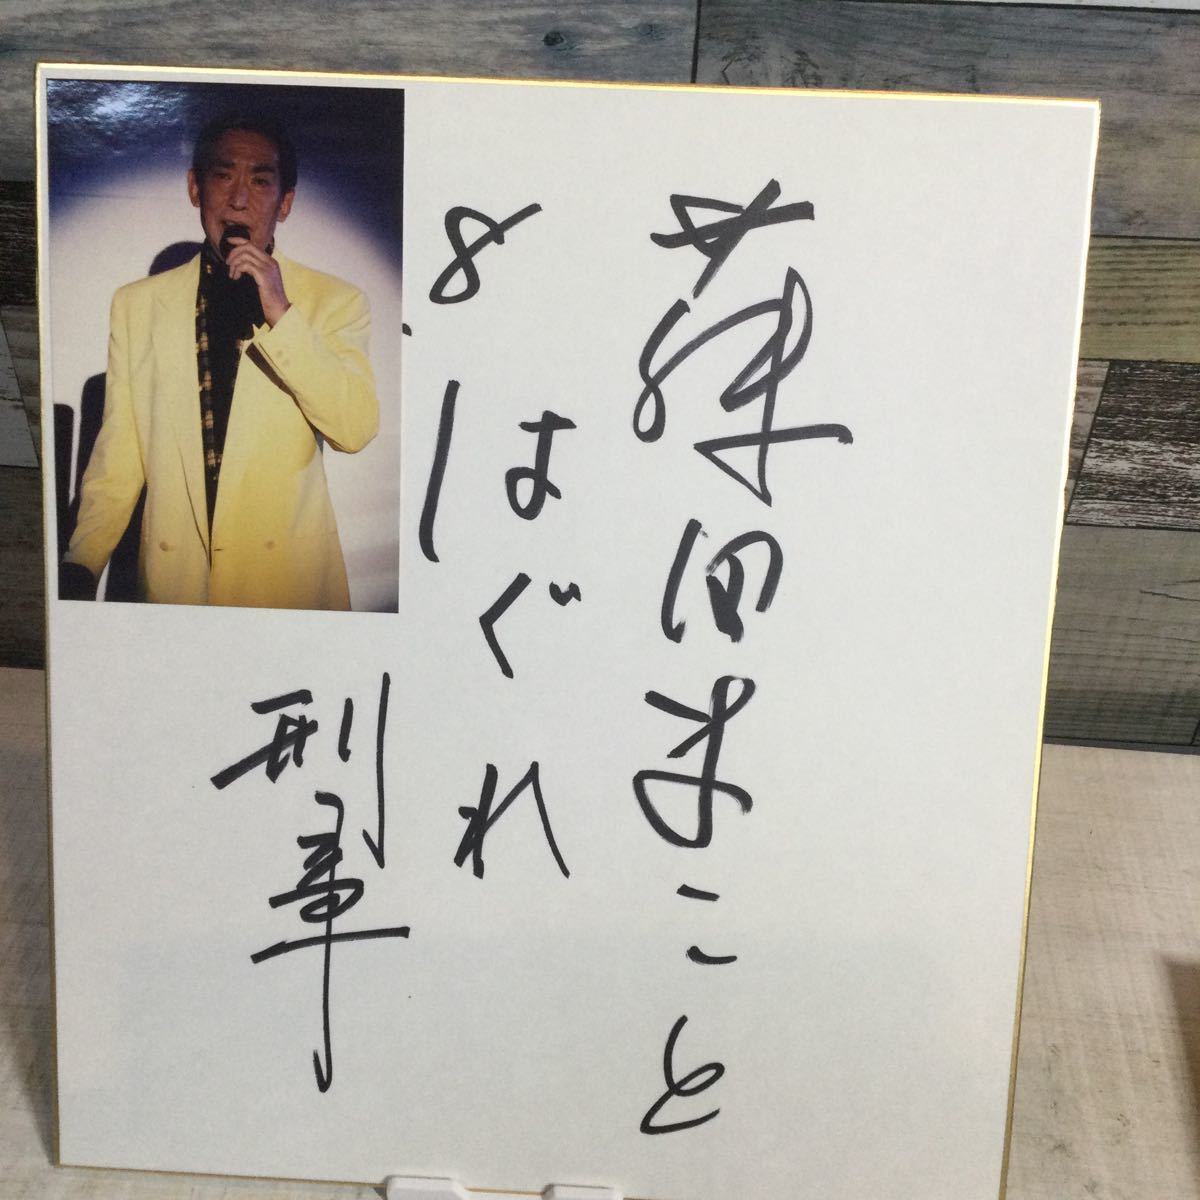 藤田まこと
8.はぐれ
刑事